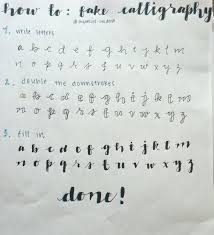 how to: fake calligraphy
1, write letters
a b c d e f g h i j k l m
n o p q r s t u v w x y z
2, double the downstrokes
a b c d e f g h i j k l m
n o p q r s t u v w x y z
3. fill in
a b c d e f g h i j k l m
n o p q r s t u v w x y z
done!